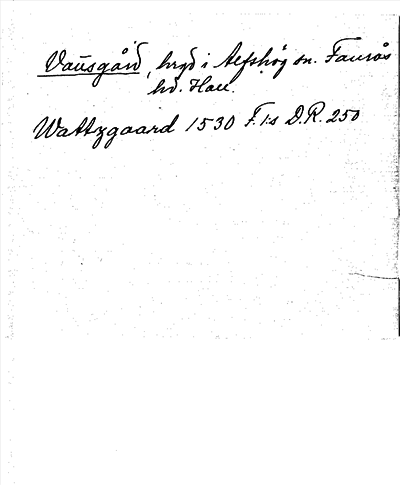 Vausgård, hrgd i Alfshög sn. Faurås
hd. Hall.
Wattzgaard 1530 F. I:s D.R. 250